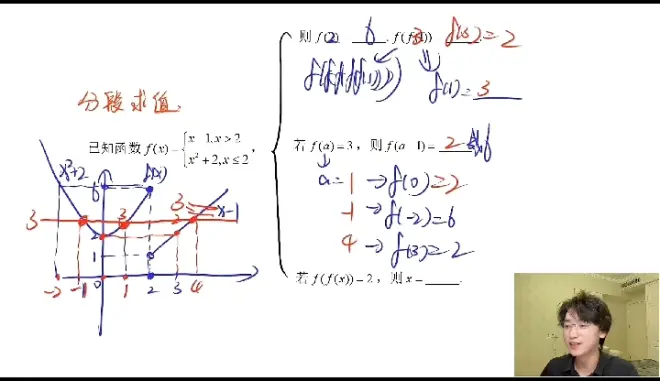 则 f(2) 6 . f(f( )) f(3)=2
f(f(f(f(1))))
f(1)=3
分段求值.
已知函数 f(x)={x 1,x>2
x²+2,x≤2 ,
若 f(a)=3, 则 f(a 1)= 2或6
a=1→f(0)=2
-1→f(-2)=6
4→f(3)=2
若 f(f(x))=2, 则 x=____.
x²+2 6 f(x)
3 3 3 x-1
2 2
1
-2 -1 0 1 2 3 4